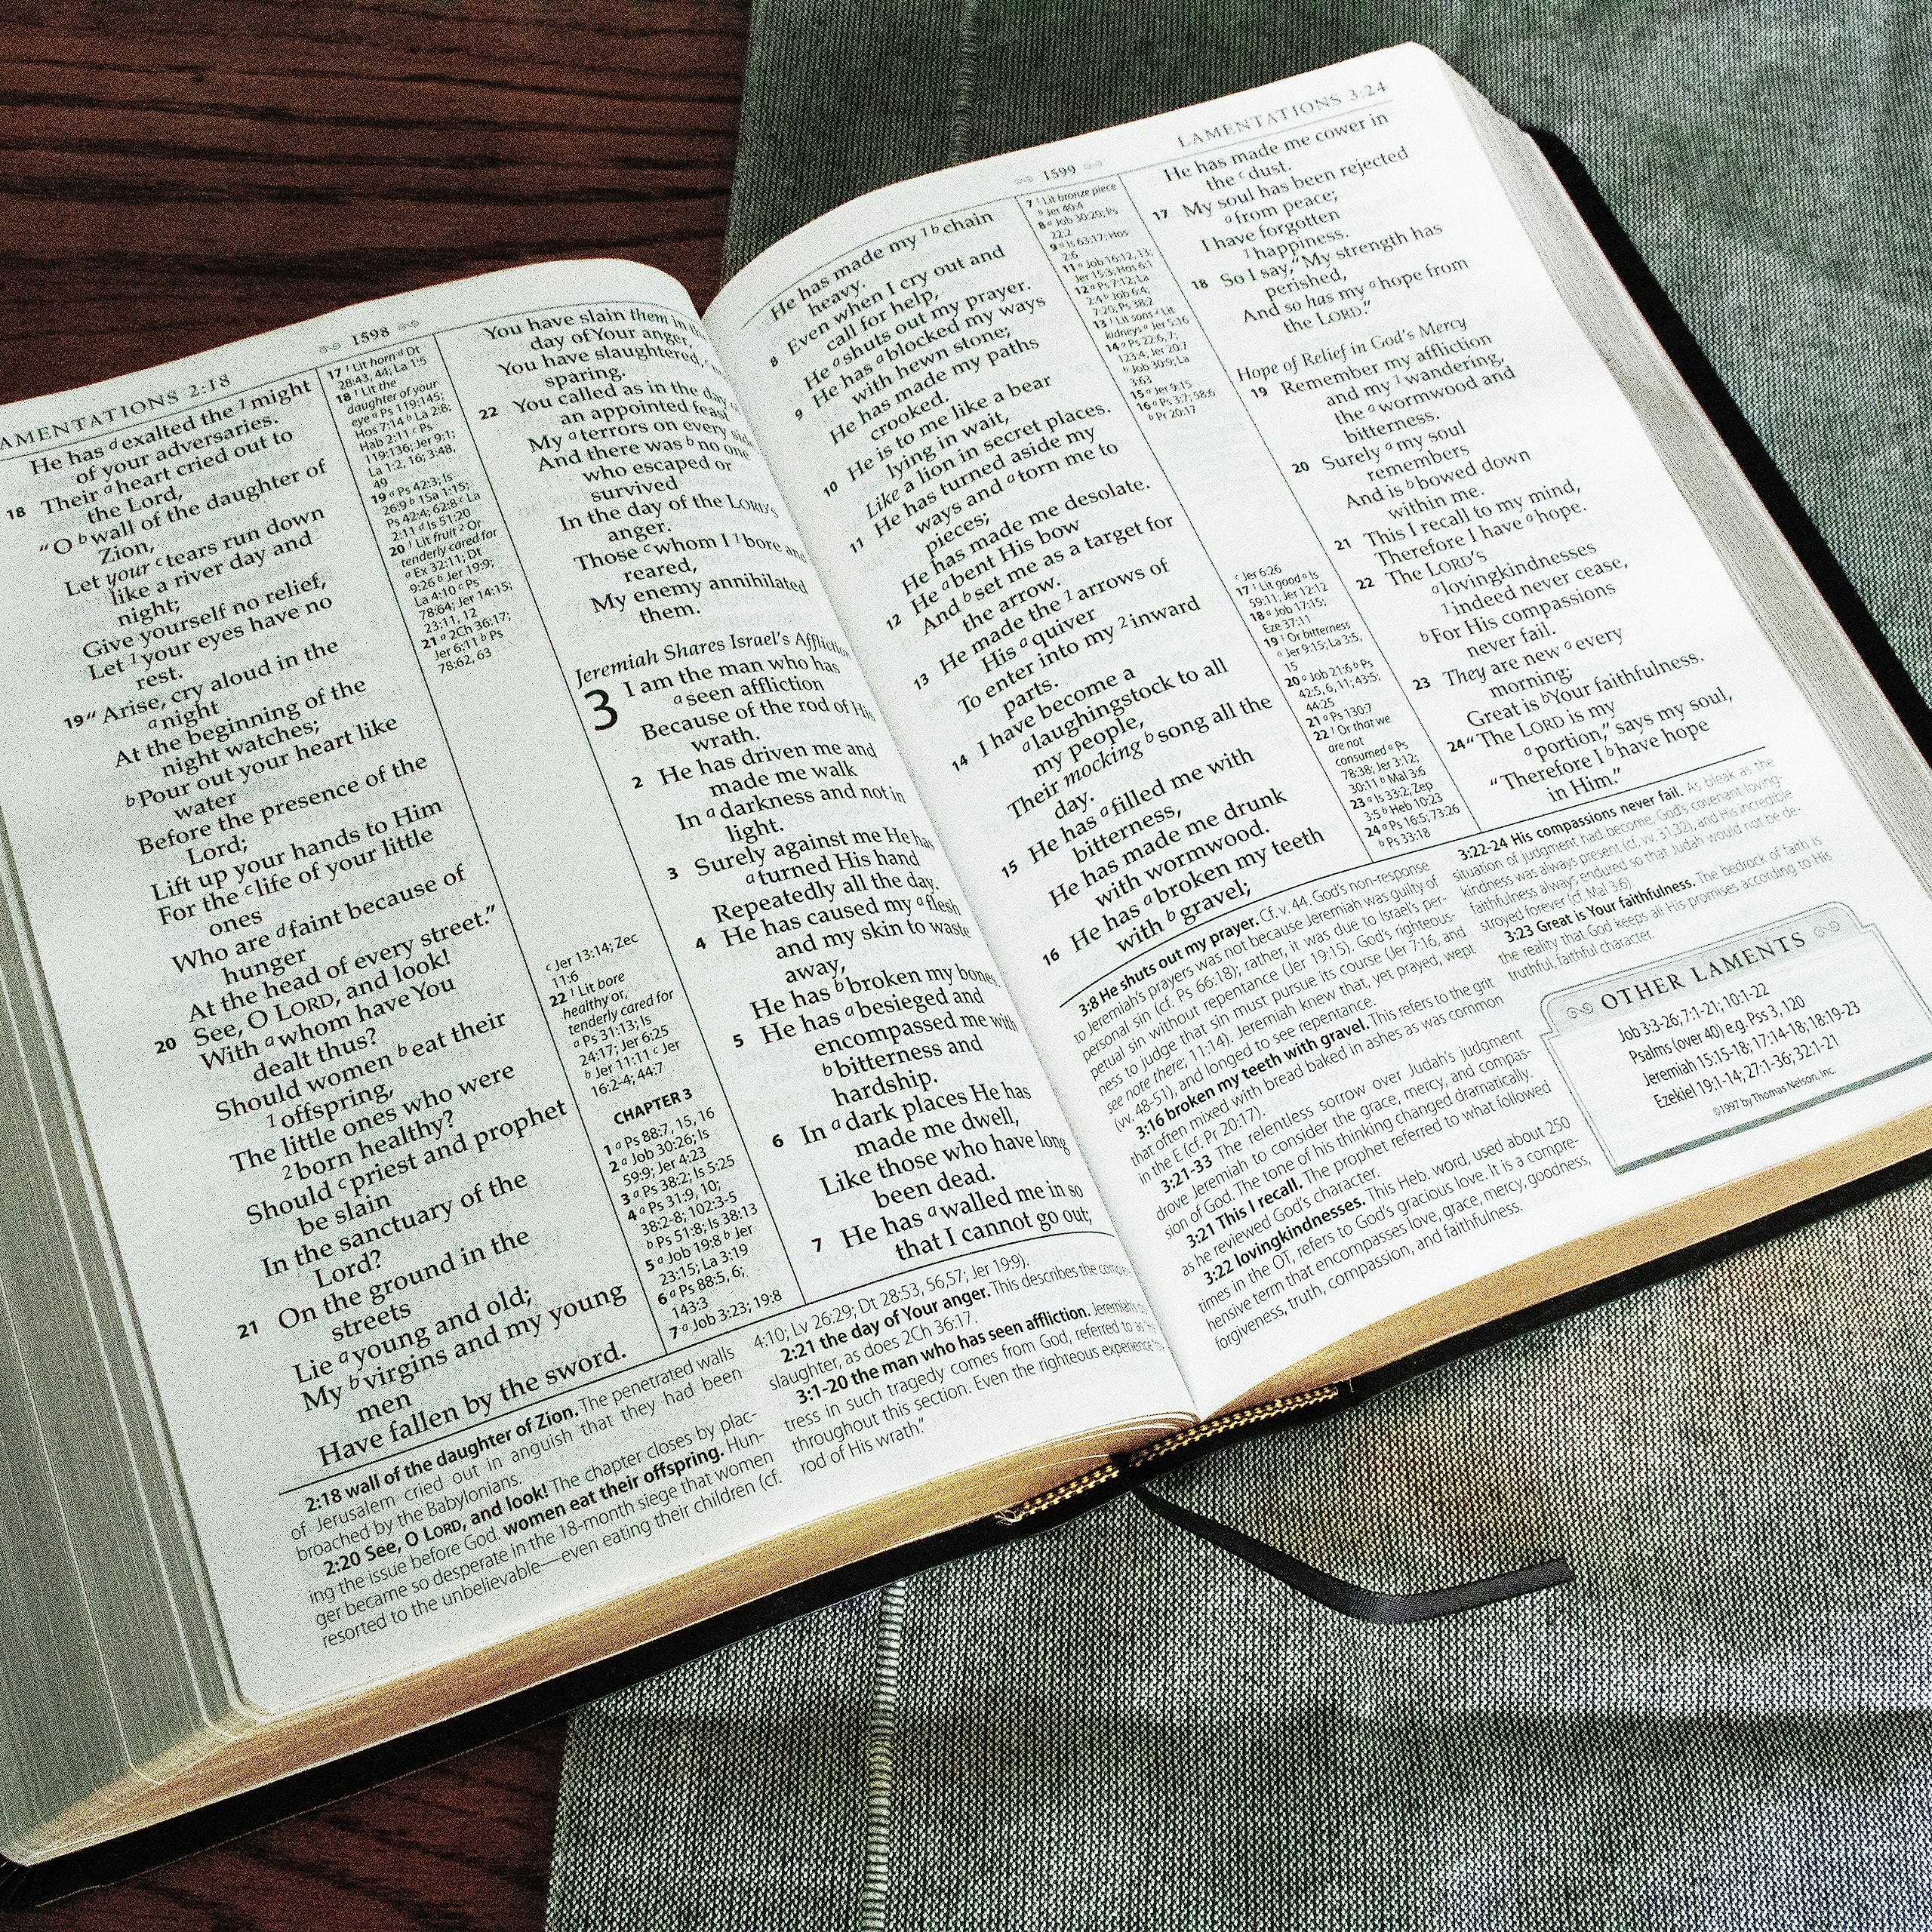 LAMENTATIONS 2:18
1598
He has d exalted the 1 might
of your adversaries.
18 Their a heart cried out to
the Lord,
"O b wall of the daughter of
Zion,
Let your c tears run down
like a river day and
night;
Give yourself no relief,
Let 1 your eyes have no
rest.
19 "Arise, cry aloud in the
a night
At the beginning of the
night watches;
b Pour out your heart like
water
Before the presence of the
Lord;
Lift up your hands to Him
For the c life of your little
ones
Who are d faint because of
hunger
At the head of every street."
20 See, O LORD, and look!
With a whom have You
dealt thus?
Should women b eat their
1 offspring,
The little ones who were
2 born healthy?
Should c priest and prophet
be slain
In the sanctuary of the
Lord?
21 On the ground in the
streets
Lie a young and old;
My b virgins and my young
men
Have fallen by the sword.
17 1 Lit horn d Dt
28:43, 44; La 1:5
18 1 Lit the
daughter of your
eye a Ps 119:145;
Hos 7:14 b La 2:8;
Hab 2:11 c Ps
119:136; Jer 9:1;
La 1:2, 16; 3:48,
49
19 a Ps 42:3; Is
26:9 b 1Sa 1:15;
Ps 42:4; 62:8 c La
2:11 d Is 51:20
20 1 Lit fruit 2 Or
tenderly cared for
a Ex 32:11; Dt
9:26 b Jer 19:9;
La 4:10 c Ps
78:64; Jer 14:15;
23:11, 12
21 a 2Ch 36:17;
Jer 6:11 b Ps
78:62, 63
c Jer 13:14; Zec
11:6
22 1 Lit bore
healthy or,
tenderly cared for
a Ps 31:13; Is
24:17; Jer 6:25
b Jer 11:11 c Jer
16:2-4; 44:7
CHAPTER 3
1 a Ps 88:7, 15, 16
2 a Job 30:26; Is
59:9; Jer 4:23
3 a Ps 38:2; Is 5:25
4 a Ps 31:9, 10;
38:2-8; 102:3-5
b Ps 51:8; Is 38:13
5 a Job 19:8 b Jer
23:15; La 3:19
6 a Ps 88:5, 6;
143:3
7 a Job 3:23; 19:8
You have slain them in the
day of Your anger,
You have slaughtered,
sparing.
22 You called as in the day of
an appointed feast
My a terrors on every side
And there was b no one
who escaped or
survived
In the day of the LORD'S
anger.
Those c whom I 1 bore and
reared,
My enemy annihilated
them.
Jeremiah Shares Israel's Affliction
3 I am the man who has
a seen affliction
Because of the rod of His
wrath.
2 He has driven me and
made me walk
In a darkness and not in
light.
3 Surely against me He has
a turned His hand
Repeatedly all the day.
4 He has caused my a flesh
and my skin to waste
away,
He has b broken my bones.
5 He has a besieged and
encompassed me with
b bitterness and
hardship.
6 In a dark places He has
made me dwell,
Like those who have long
been dead.
7 He has a walled me in so
that I cannot go out;
2:18 wall of the daughter of Zion. The penetrated walls
of Jerusalem cried out in anguish that they had been
broached by the Babylonians.
2:20 See, O LORD, and look! The chapter closes by plac-
ing the issue before God. women eat their offspring. Hun-
ger became so desperate in the 18-month siege that women
resorted to the unbelievable—even eating their children (cf.
4:10; Lv 26:29; Dt 28:53, 56,57; Jer 19:9).
2:21 the day of Your anger. This describes the
slaughter, as does 2Ch 36:17.
3:1-20 the man who has seen affliction. Jeremiah's
tress in such tragedy comes from God, referred to as
throughout this section. Even the righteous experience
rod of His wrath."
1599
LAMENTATIONS 3:24
He has made my 1 b chain
heavy.
8 Even when I cry out and
call for help,
He a shuts out my prayer.
9 He has a blocked my ways
with hewn stone;
He has made my paths
crooked.
10 He is to me like a bear
lying in wait,
Like a lion in secret places.
11 He has turned aside my
ways and a torn me to
pieces;
He has made me desolate.
12 He a bent His bow
And b set me as a target for
the arrow.
13 He made the 1 arrows of
His a quiver
To enter into my 2 inward
parts.
14 I have become a
a laughingstock to all
my people,
Their mocking b song all the
day.
15 He has a filled me with
bitterness,
He has made me drunk
with wormwood.
16 He has a broken my teeth
with b gravel;
7 1 Lit bronze piece
b Jer 40:4
8 a Job 30:20; Ps
22:2
9 a Is 63:17; Hos
2:6
11 a Job 16:12, 13;
Jer 15:3; Hos 6:1
12 a Ps 7:12; La
2:4 b Job 6:4;
7:20; Ps 38:2
13 1 Lit sons 2 Lit
kidneys a Jer 5:16
14 a Ps 22:6, 7;
123:4; Jer 20:7
b Job 30:9; La
3:63
15 a Jer 9:15
16 a Ps 3:7; 58:6
b Pr 20:17
c Jer 6:26
17 1 Lit good a Is
59:11; Jer 12:12
18 a Job 17:15;
Eze 37:11
19 1 Or bitterness
a Jer 9:15; La 3:5,
15
20 a Job 21:6 b Ps
42:5, 6, 11; 43:5;
44:25
21 a Ps 130:7
22 1 Or that we
are not
consumed a Ps
78:38; Jer 3:12;
30:11 b Mal 3:6
23 a Is 33:2; Zep
3:5 b Heb 10:23
24 a Ps 16:5; 73:26
b Ps 33:18
He has made me cower in
the c dust.
17 My soul has been rejected
a from peace;
I have forgotten
1 happiness.
18 So I say, "My strength has
perished,
And so has my a hope from
the LORD."
Hope of Relief in God's Mercy
19 Remember my affliction
and my 1 wandering,
the a wormwood and
bitterness.
20 Surely a my soul
remembers
And is b bowed down
within me.
21 This I recall to my mind,
Therefore I have a hope.
22 The LORD'S
a lovingkindnesses
1 indeed never cease,
b For His compassions
never fail.
23 They are new a every
morning;
Great is b Your faithfulness.
24 "The LORD is my
a portion," says my soul,
"Therefore I b have hope
in Him."
3:8 He shuts out my prayer. Cf. v. 44. God's non-response
to Jeremiah's prayers was not because Jeremiah was guilty of
personal sin (cf. Ps 66:18); rather, it was due to Israel's per-
petual sin without repentance (Jer 19:15). God's righteous-
ness to judge that sin must pursue its course (Jer 7:16, and
see note there; 11:14). Jeremiah knew that, yet prayed, wept
(vv. 48-51), and longed to see repentance.
3:16 broken my teeth with gravel. This refers to the grit
that often mixed with bread baked in ashes as was common
in the E (cf. Pr 20:17).
3:21-33 The relentless sorrow over Judah's judgment
drove Jeremiah to consider the grace, mercy, and compas-
sion of God. The tone of his thinking changed dramatically.
3:21 This I recall. The prophet referred to what followed
as he reviewed God's character.
3:22 lovingkindnesses. This Heb. word, used about 250
times in the OT, refers to God's gracious love. It is a compre-
hensive term that encompasses love, grace, mercy, goodness,
forgiveness, truth, compassion, and faithfulness.
3:22-24 His compassions never fail. As bleak as the
situation of judgment had become, God's covenant loving-
kindness was always present (cf. vv. 31,32), and His incredible
faithfulness always endured so that Judah would not be de-
stroyed forever (cf. Mal 3:6).
3:23 Great is Your faithfulness. The bedrock of faith is
the reality that God keeps all His promises according to His
truthful, faithful character.
OTHER LAMENTS
Job 3:3-26; 7:1-21; 10:1-22
Psalms (over 40) e.g. Pss 3, 120
Jeremiah 15:15-18; 17:14-18; 18:19-23
Ezekiel 19:1-14; 27:1-36; 32:1-21
©1997 by Thomas Nelson, Inc.